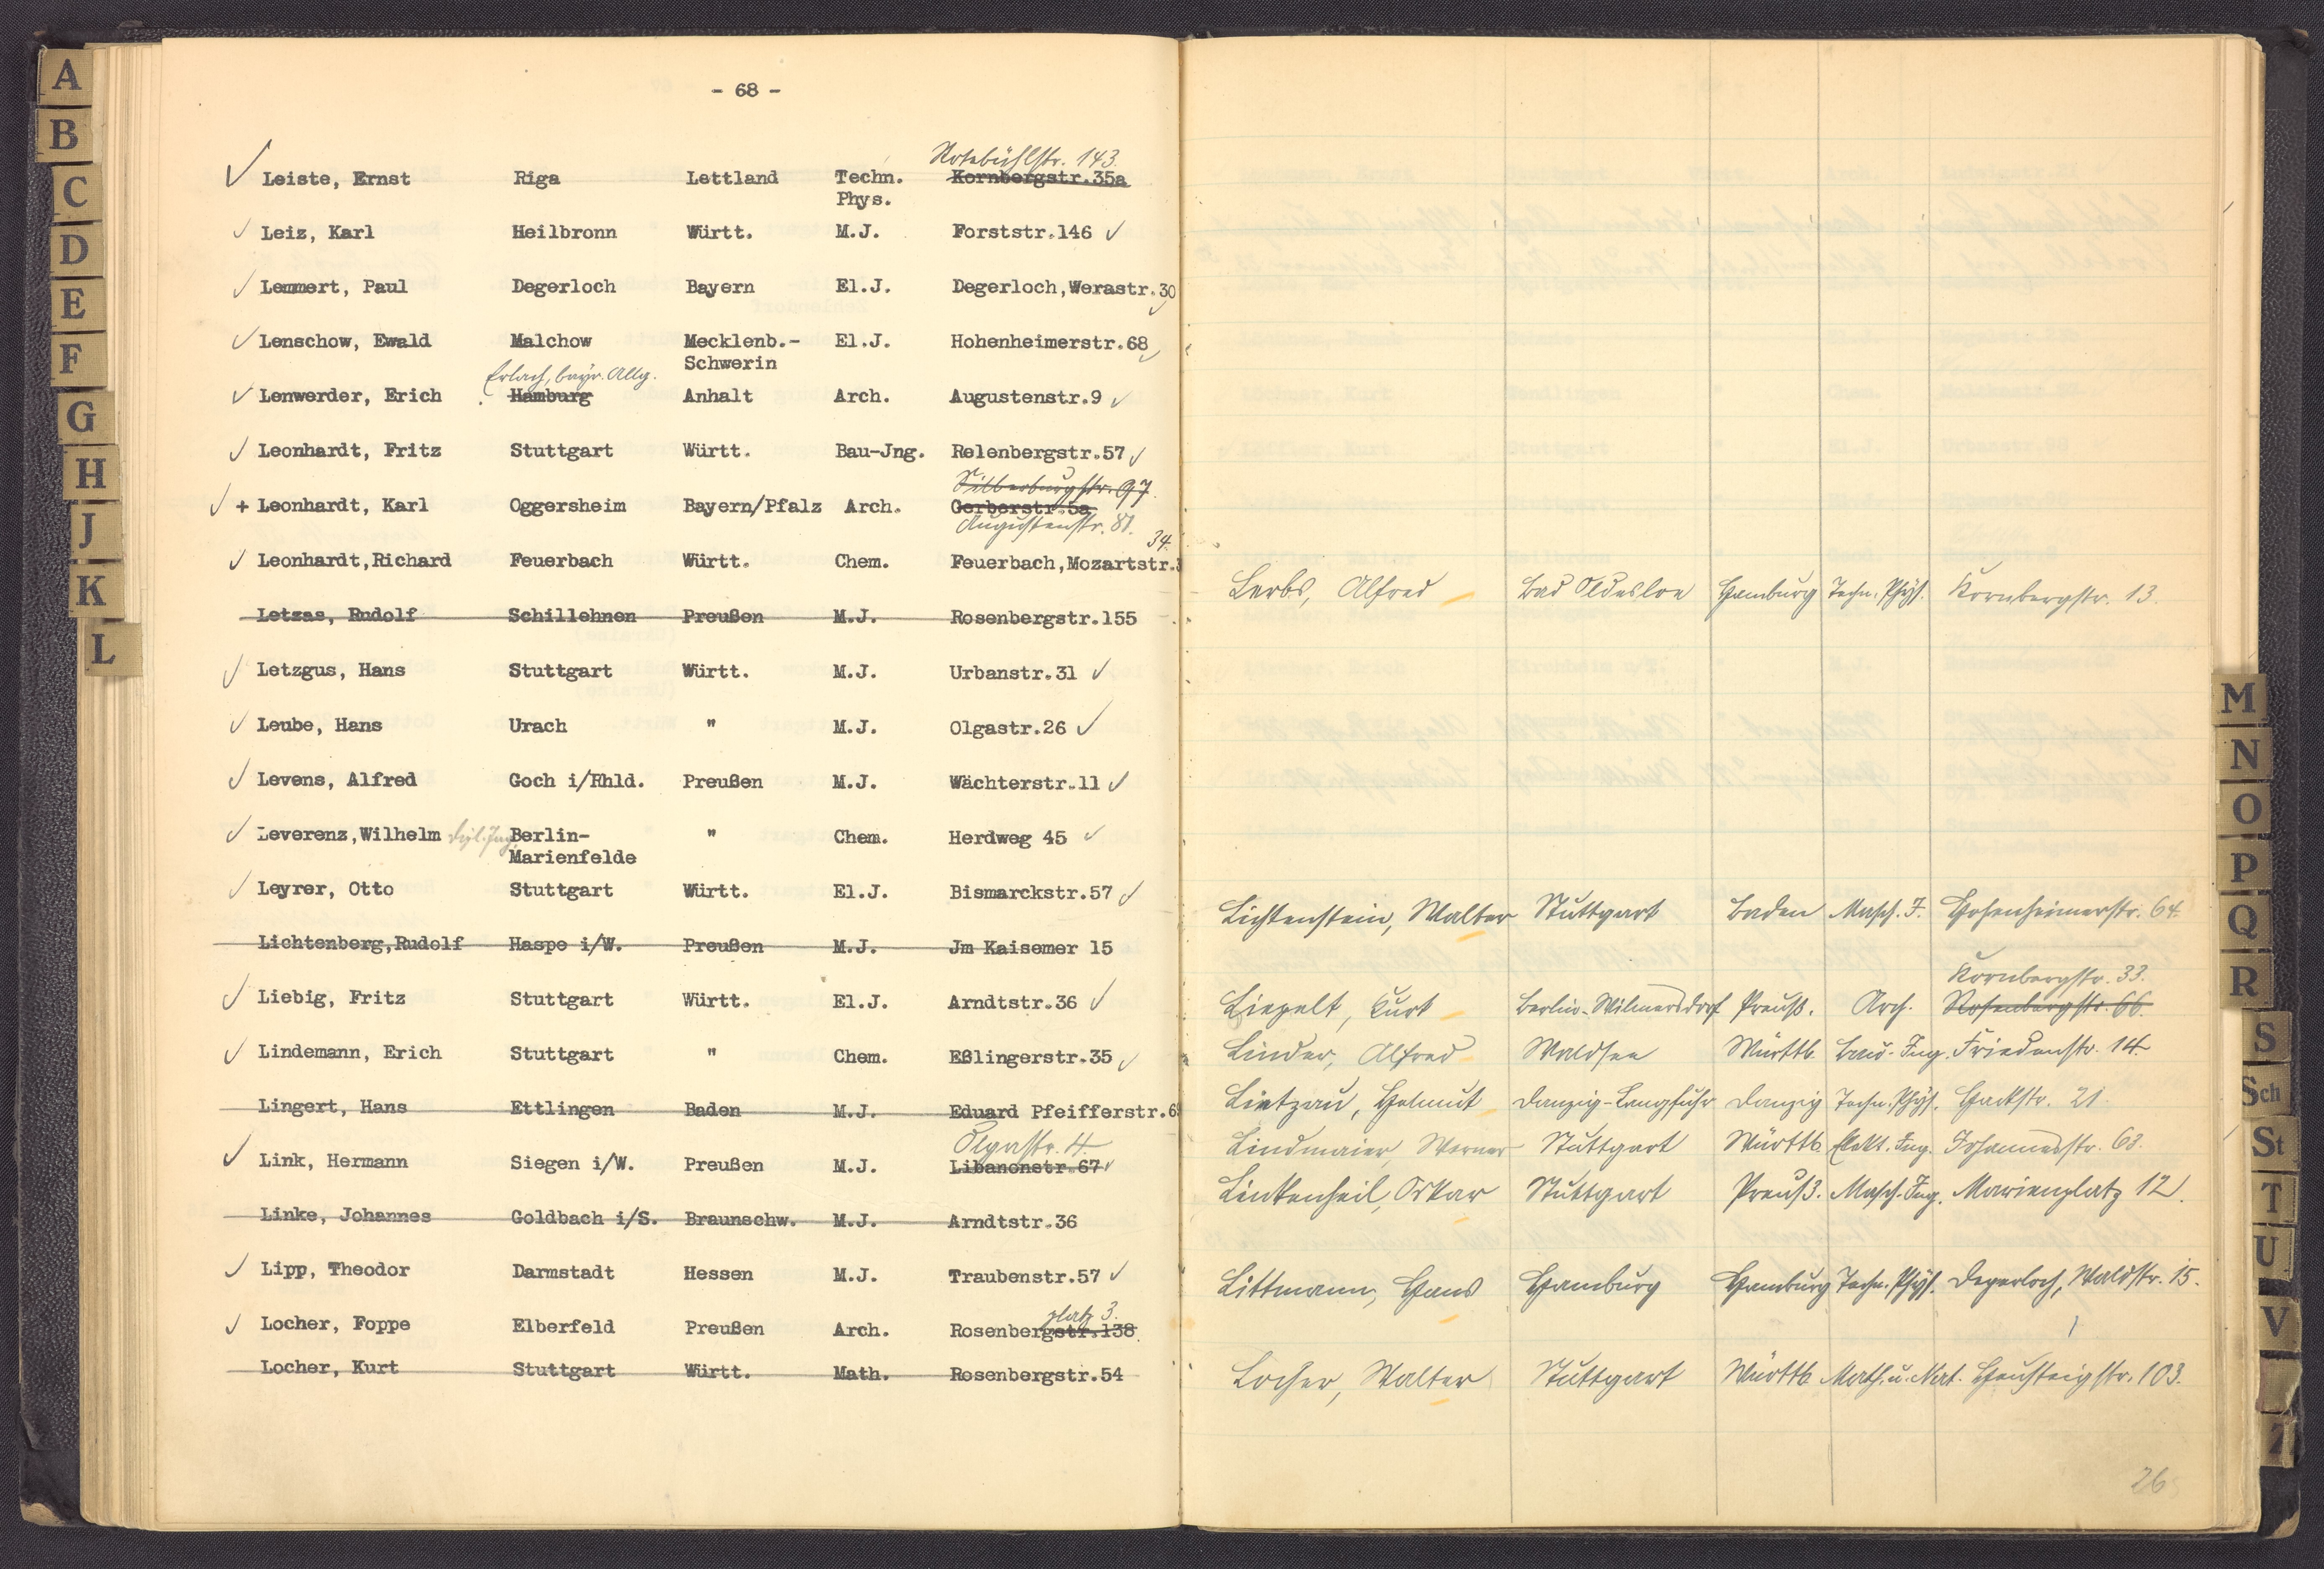 - 68 -
Rotebühlstr. 143.
Leiste, Ernst Riga Lettland Techn. Kornbergstr.35a
Phys.
Leiz, Karl Heilbronn Württ. M.J. Forststr.146
Lemmert, Paul Degerloch Bayern El.J. Degerloch,Werastr.30
Lenschow, Ewald Malchow Mecklenb.- El.J. Hohenheimerstr.68
Schwerin
Erlach, bayr. Allg.
Lenwerder, Erich Hamburg Anhalt Arch. Augustenstr.9
Leonhardt, Fritz Stuttgart Württ. Bau-Jng. Relenbergstr.57
Silberburgstr. 97.
+ Leonhardt, Karl Oggersheim Bayern/Pfalz Arch. Gerberstr.5a
Augustenstr. 81.
34.
Leonhardt,Richard Feuerbach Württ. Chem. Feuerbach,Mozartstr.
Letzas, Rudolf Schillehnen Preußen M.J. Rosenbergstr.155
Letzgus, Hans Stuttgart Württ. M.J. Urbanstr.31
Leube, Hans Urach " M.J. Olgastr.26
Levens, Alfred Goch i/Rhld. Preußen M.J. Wächterstr.11
Leverenz,Wilhelm Dipl.Ing. Berlin- " Chem. Herdweg 45
Marienfelde
Leyrer, Otto Stuttgart Württ. El.J. Bismarckstr.57
Lichtenberg,Rudolf Haspe i/W. Preußen M.J. Jm Kaisemer 15
Liebig, Fritz Stuttgart Württ. El.J. Arndtstr.36
Lindemann, Erich Stuttgart " Chem. Eßlingerstr.35
Lingert, Hans Ettlingen Baden M.J. Eduard Pfeifferstr.6
Olgastr. 4.
Link, Hermann Siegen i/W. Preußen M.J. Libanonstr.67
Linke, Johannes Goldbach i/S. Braunschw. M.J. Arndtstr.36
Lipp, Theodor Darmstadt Hessen M.J. Traubenstr.57
platz 3.
Locher, Foppe Elberfeld Preußen Arch. Rosenbergstr.138
Locher, Kurt Stuttgart Württ. Math. Rosenbergstr.54
Lerbs, Alfred Bad Oldesloe Hamburg Techn. Phys. Kornbergstr. 13.
Lichtenstein, Walter Stuttgart Baden Masch. I. Hohenheimerstr. 64.
Kornbergstr. 33.
Liepelt, Kurt Berlin-Wilmersdorf Preuß. Arch. Rosenbergstr. 66.
Linder, Alfred Waldsee Württb. Bau-Ing. Friedenstr. 14.
Lietzau, Helmut Danzig-Langfuhr Danzig Techn. Phys. Hackstr. 21.
Lindmaier, Werner Stuttgart Württb. Elekt. Ing. Johannesstr. 63.
Linkenheil, Oskar Stuttgart Preuß. Masch.-Ing. Marienplatz 12.
Littmann, Hans Hamburg Hamburg Techn. Phys. Degerloch, Waldstr. 15.
Locher, Walter Stuttgart Württb. Math. u. Nat. Heusteigstr. 103.
26
A
B
C
D
E
F
G
H
J
K
L
M
N
O
P
Q
R
S
Sch
St
T
U
V
Z